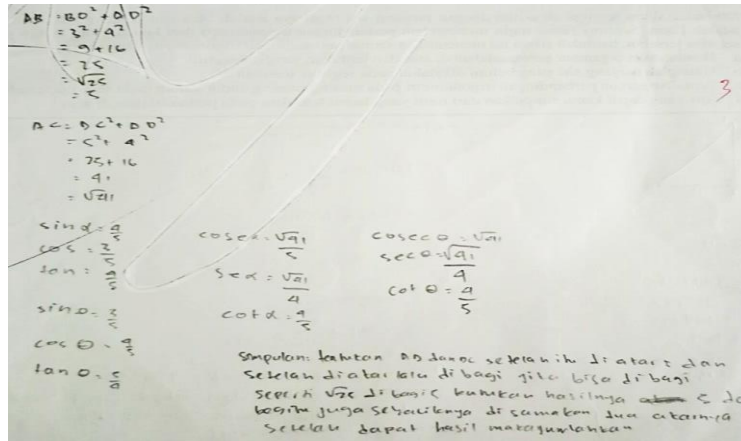 AB = BD² + AD²
= 3² + 4²
= 9 + 16
= 25
= √25
= 5
3
AC = DC² + AD²
= 5² + 4²
= 25 + 16
= 41
= √41
sin α = 4/5
cos = 3/5
tan =
sin θ = 3/5
cos θ = 4/5
tan θ = 5/4
cosec = √41/5
sec α = √41/4
cot α = 4/5
cosec θ = √41
sec θ = √41/4
cot θ = 4/5
Simpulan: tentukan AD dan DC setelah itu di akar dan
setelah diakar lalu di bagi jika bisa di bagi
seperti √25 di bagi 5 hasilnya 5 da
bagitu juga sebaliknya di samakan dua akarnya
setelah dapat hasil